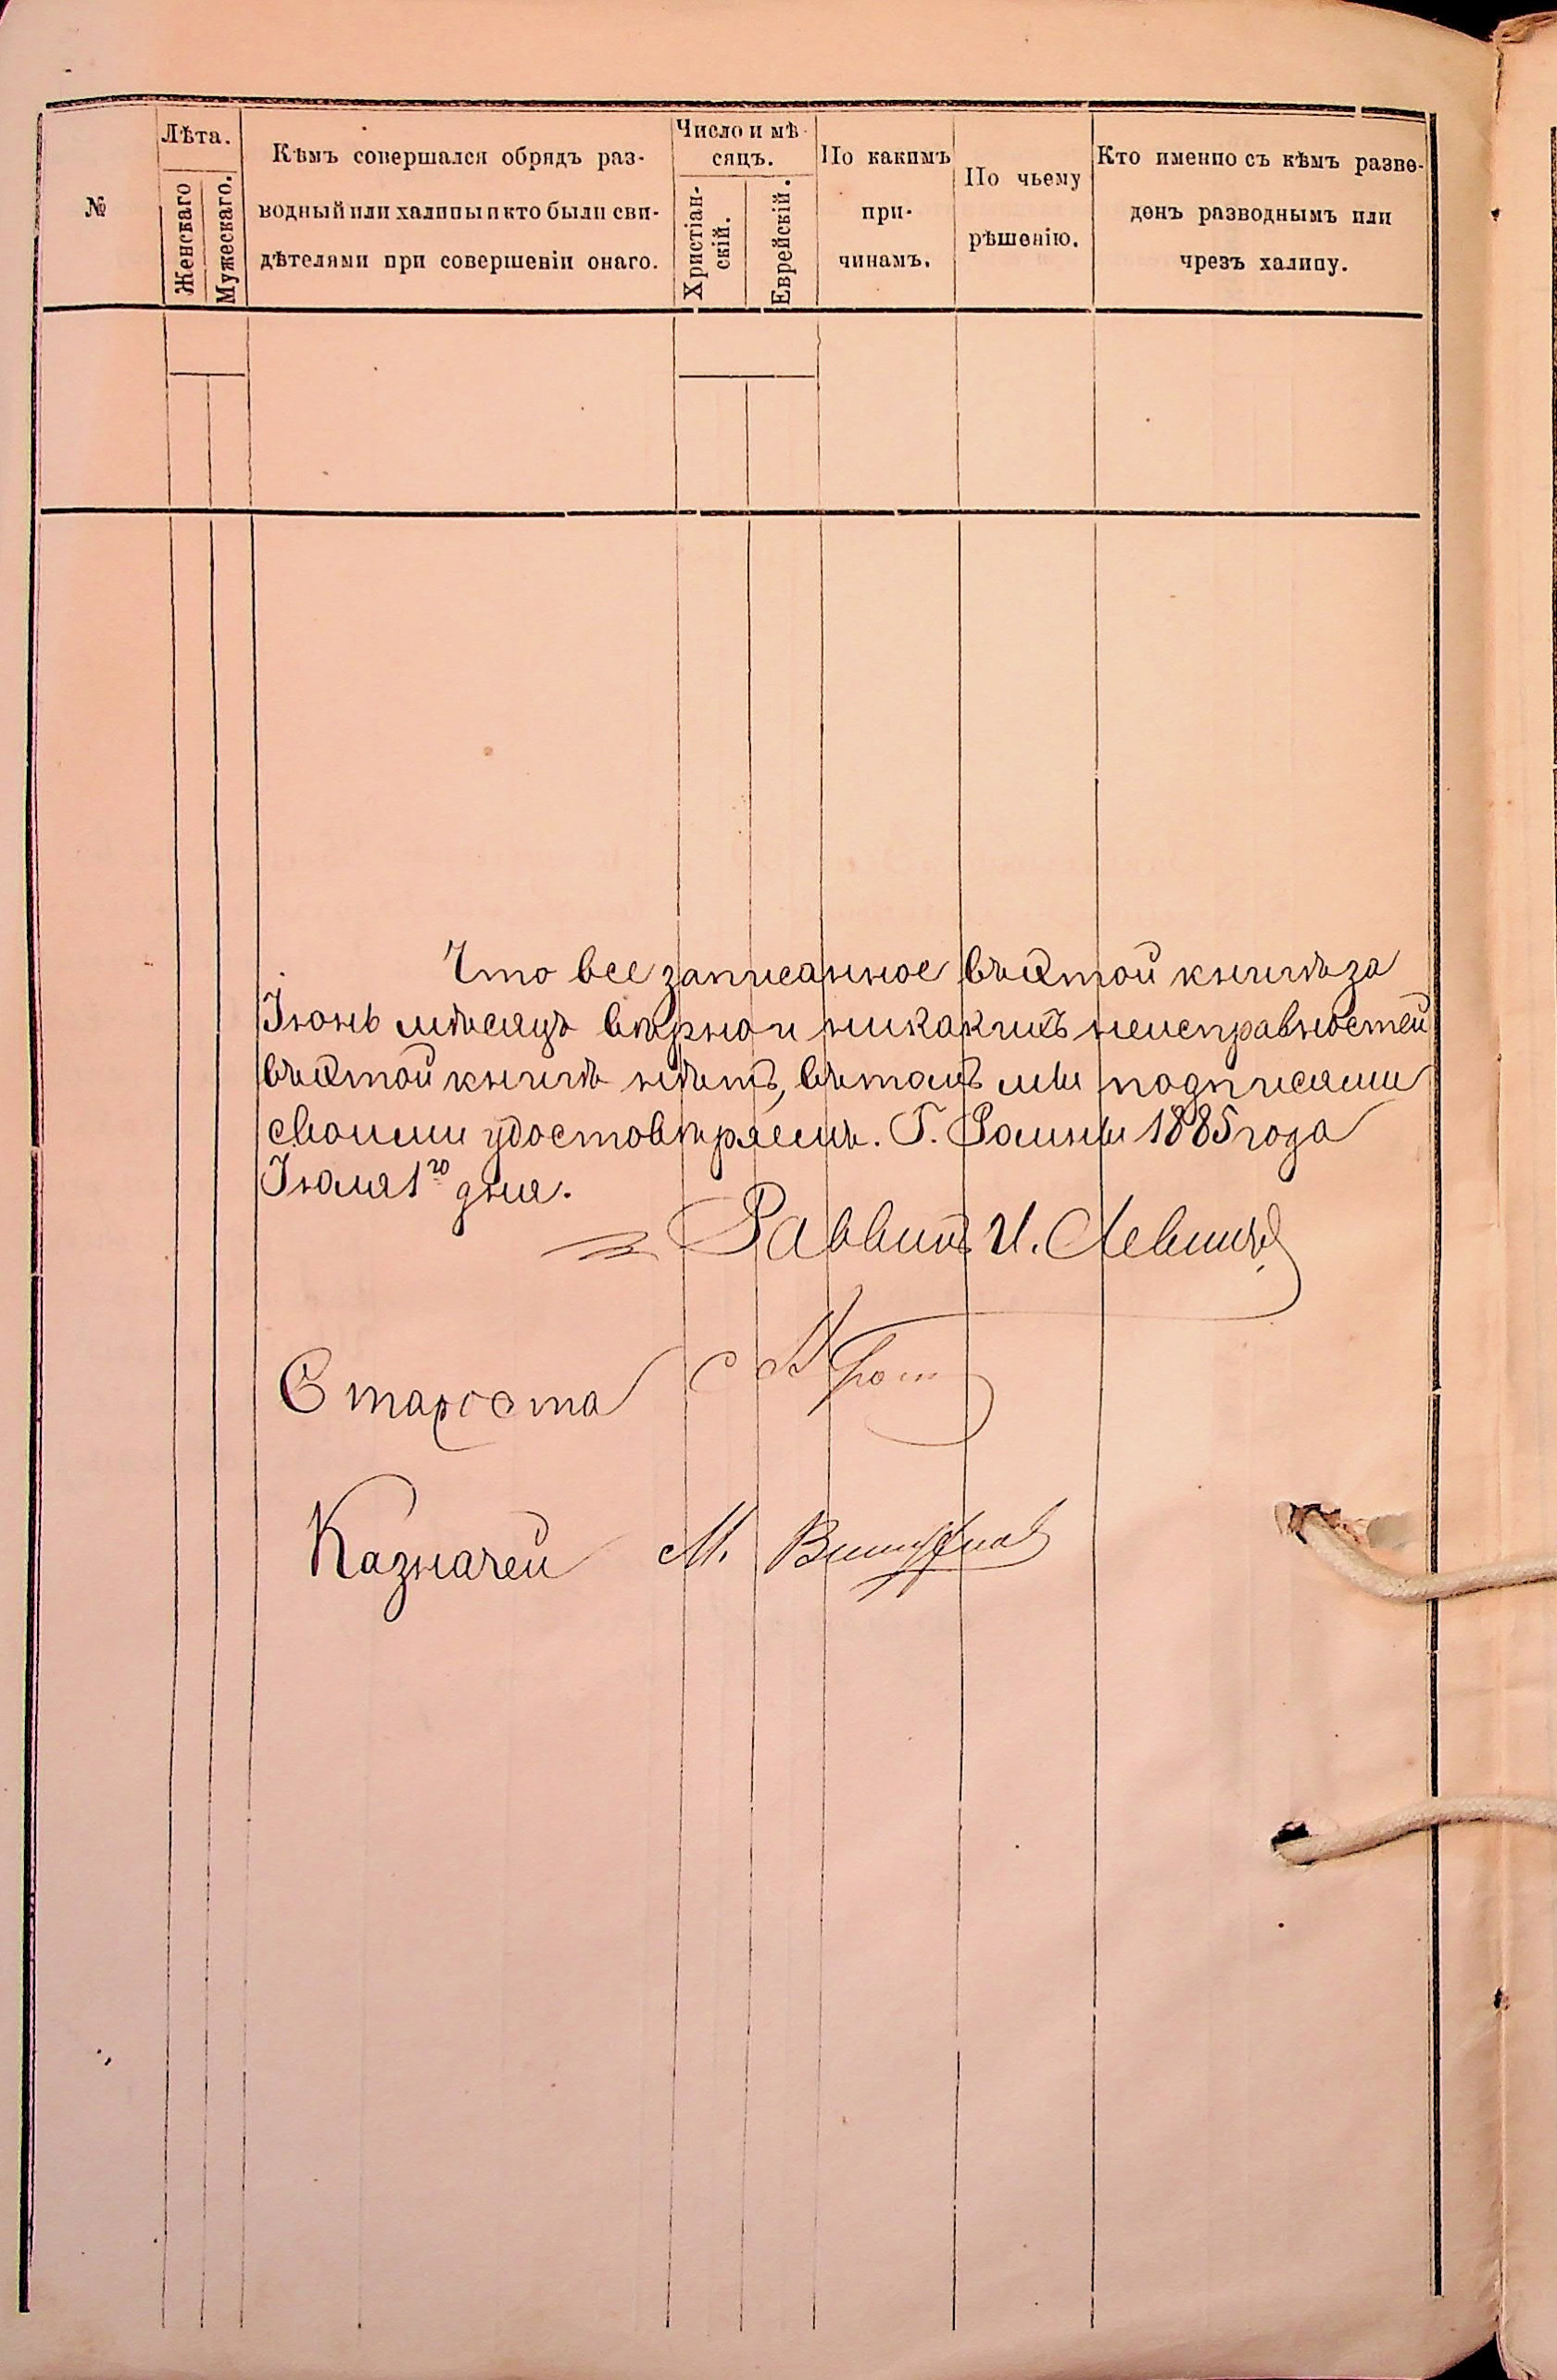 №
Лѣта.
Женскаго
Мужескаго.
Кѣмъ совершался обрядъ раз-
водный или халицы и кто были сви-
дѣтелями при совершеніи онаго.
Число и мѣ-
сяцъ.
Христіан-
скій.
Еврейскій.
По какимъ
при-
чинамъ.
По чьему
рѣшенію.
Кто именно съ кѣмъ разве-
денъ разводнымъ или
чрезъ халицу.
Что все записанное въ этой книгѣ за
Іюнь мѣсяцъ вѣрно и никакихъ неисправностей
въ этой книгѣ нѣтъ, въ томъ мы подписями
своими удостовѣряемъ. Г. Ромны 1885 года
Іюля 1го дня.
Раввинъ И. Левинъ
Староста
Казначей М.